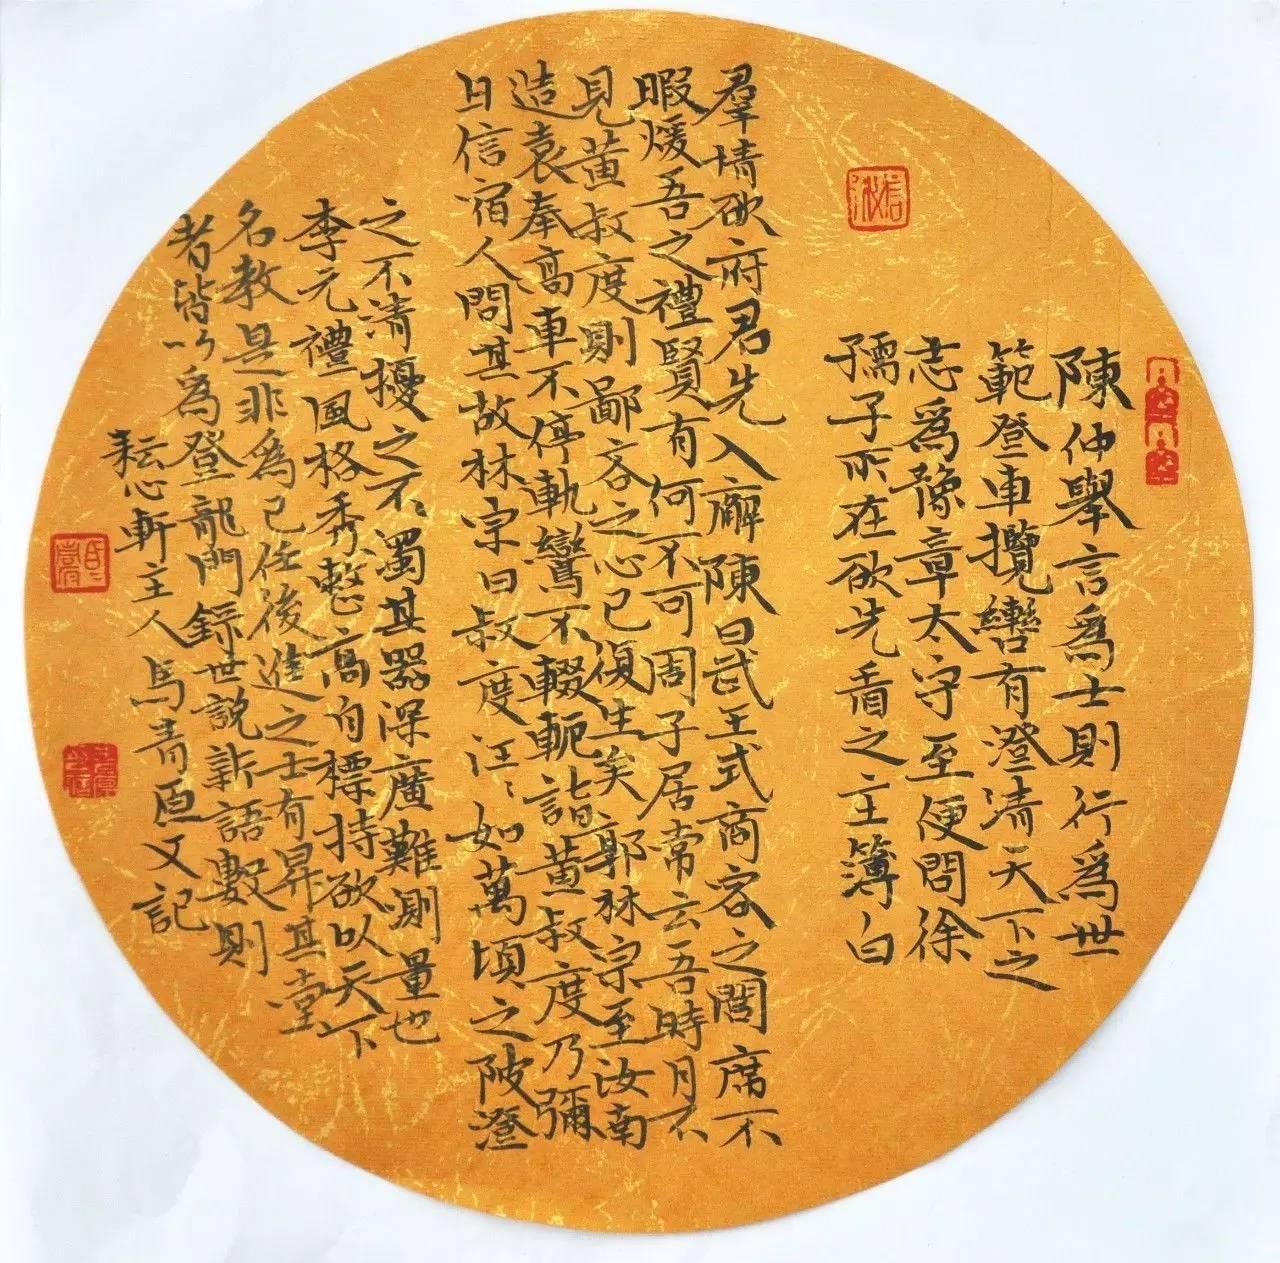 陳仲舉言爲士則行爲世
範登車攬轡有澄清天下之
志爲豫章太守至便問徐
孺子所在欲先看之主簿白
羣情欲府君先入廨陳曰武王式商容之閭席不
暇煖吾之禮賢有何不可周子居常云吾時月不
見黄叔度則鄙吝之心已復生矣郭林宗至汝南
造袁奉高車不停軌鸞不輟軛詣黄叔度乃彌
日信宿人問其故林宗曰叔度汪〻如萬頃之陂澄
之不清擾之不濁其器深廣難測量也
李元禮風格秀整高自標持欲以天下
名教是非爲己任後進之士有昇其堂
者皆以爲登龍門錄世說新語數則
耘心軒主人馬青文記